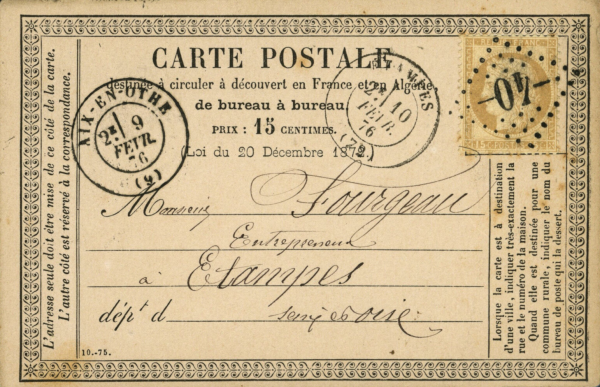 CARTE POSTALE
destinée à circuler à découvert en France et en Algérie
de bureau à bureau.
PRIX : 15 CENTIMES.
(Loi du 20 Décembre 187
AIX-EN-OTHE
2E
9
FEVR.
76
(9)
10
FEVR.
76
40
15
L'adresse seule doit être mise de ce côté de la carte.
L'autre côté est réservé à la correspondance.
Monsieur Fourgeau
Entrepreneur
à Etampes
dépt d seine et oise
Lorsque la carte est à destination
d'une ville, indiquer très-exactement la
rue et le numéro de la maison.
Quand elle est destinée pour une
commune rurale, indiquer le nom du
bureau de poste qui la dessert.
10.-75.